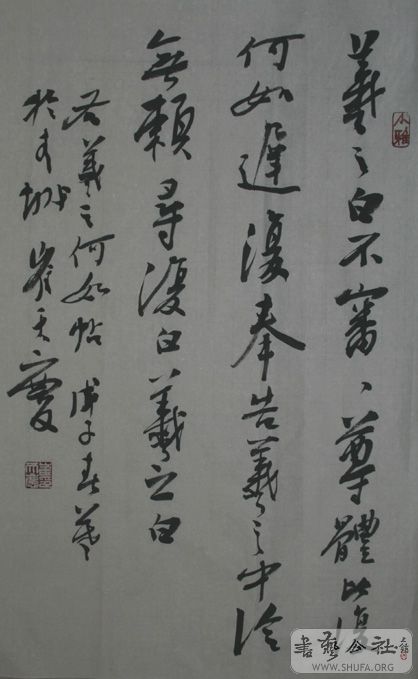 羲之白不審、尊體比復
何如遲復奉告羲之中冷
無賴尋復白羲之白
右羲之何如帖 戊子春
於
書藝公社
WWW.SHUFA.ORG